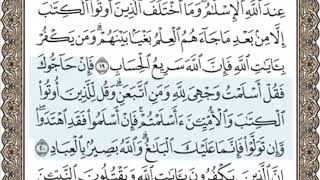 عِندَ ٱللَّهِ ٱلْإِسْلَٰمُ وَمَا ٱخْتَلَفَ ٱلَّذِينَ أُوتُوا۟ ٱلْكِتَٰبَ
إِلَّا مِنۢ بَعْدِ مَا جَآءَهُمُ ٱلْعِلْمُ بَغْيًۢا بَيْنَهُمْ وَمَن يَكْفُرْ
بِـَٔايَٰتِ ٱللَّهِ فَإِنَّ ٱللَّهَ سَرِيعُ ٱلْحِسَابِ ١٩ فَإِنْ حَآجُّوكَ
فَقُلْ أَسْلَمْتُ وَجْهِىَ لِلَّهِ وَمَنِ ٱتَّبَعَنِ وَقُل لِّلَّذِينَ أُوتُوا۟
ٱلْكِتَٰبَ وَٱلْأُمِّيِّۦنَ ءَأَسْلَمْتُمْ فَإِنْ أَسْلَمُوا۟ فَقَدِ ٱهْتَدَوا۟
وَّإِن تَوَلَّوْا۟ فَإِنَّمَا عَلَيْكَ ٱلْبَلَٰغُ وَٱللَّهُ بَصِيرٌۢ بِٱلْعِبَادِ ٢٠
إِنَّ ٱلَّذِينَ يَكْفُرُونَ بِـَٔايَٰتِ ٱللَّهِ وَيَقْتُلُونَ ٱلنَّبِيِّۦنَ